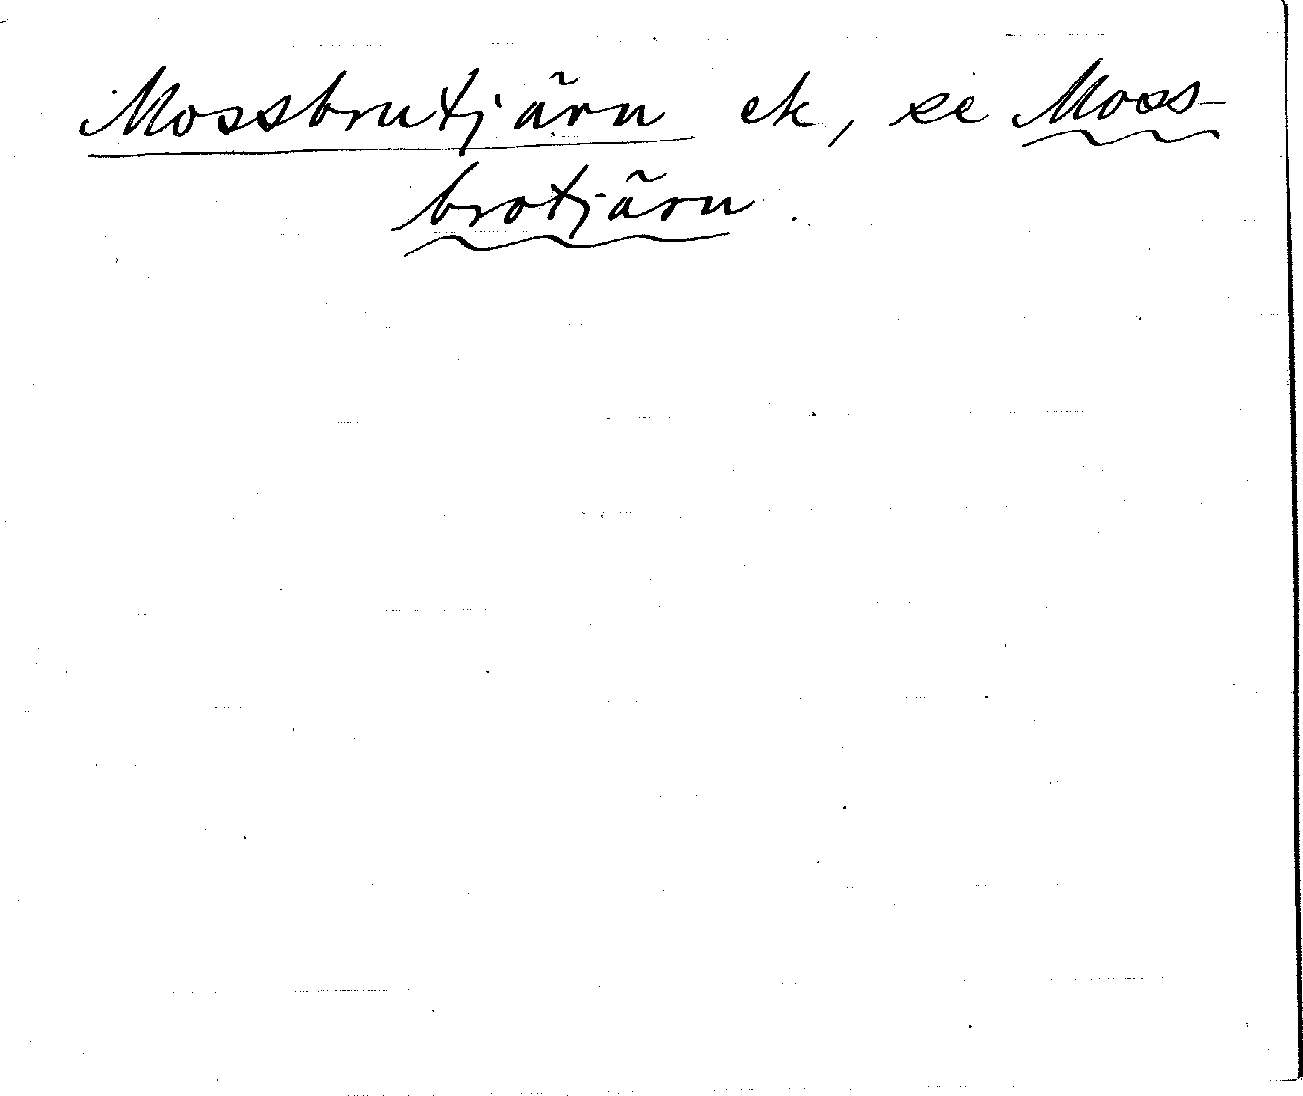 Mossbrutjärn ek, se Moss-
brotjärn.